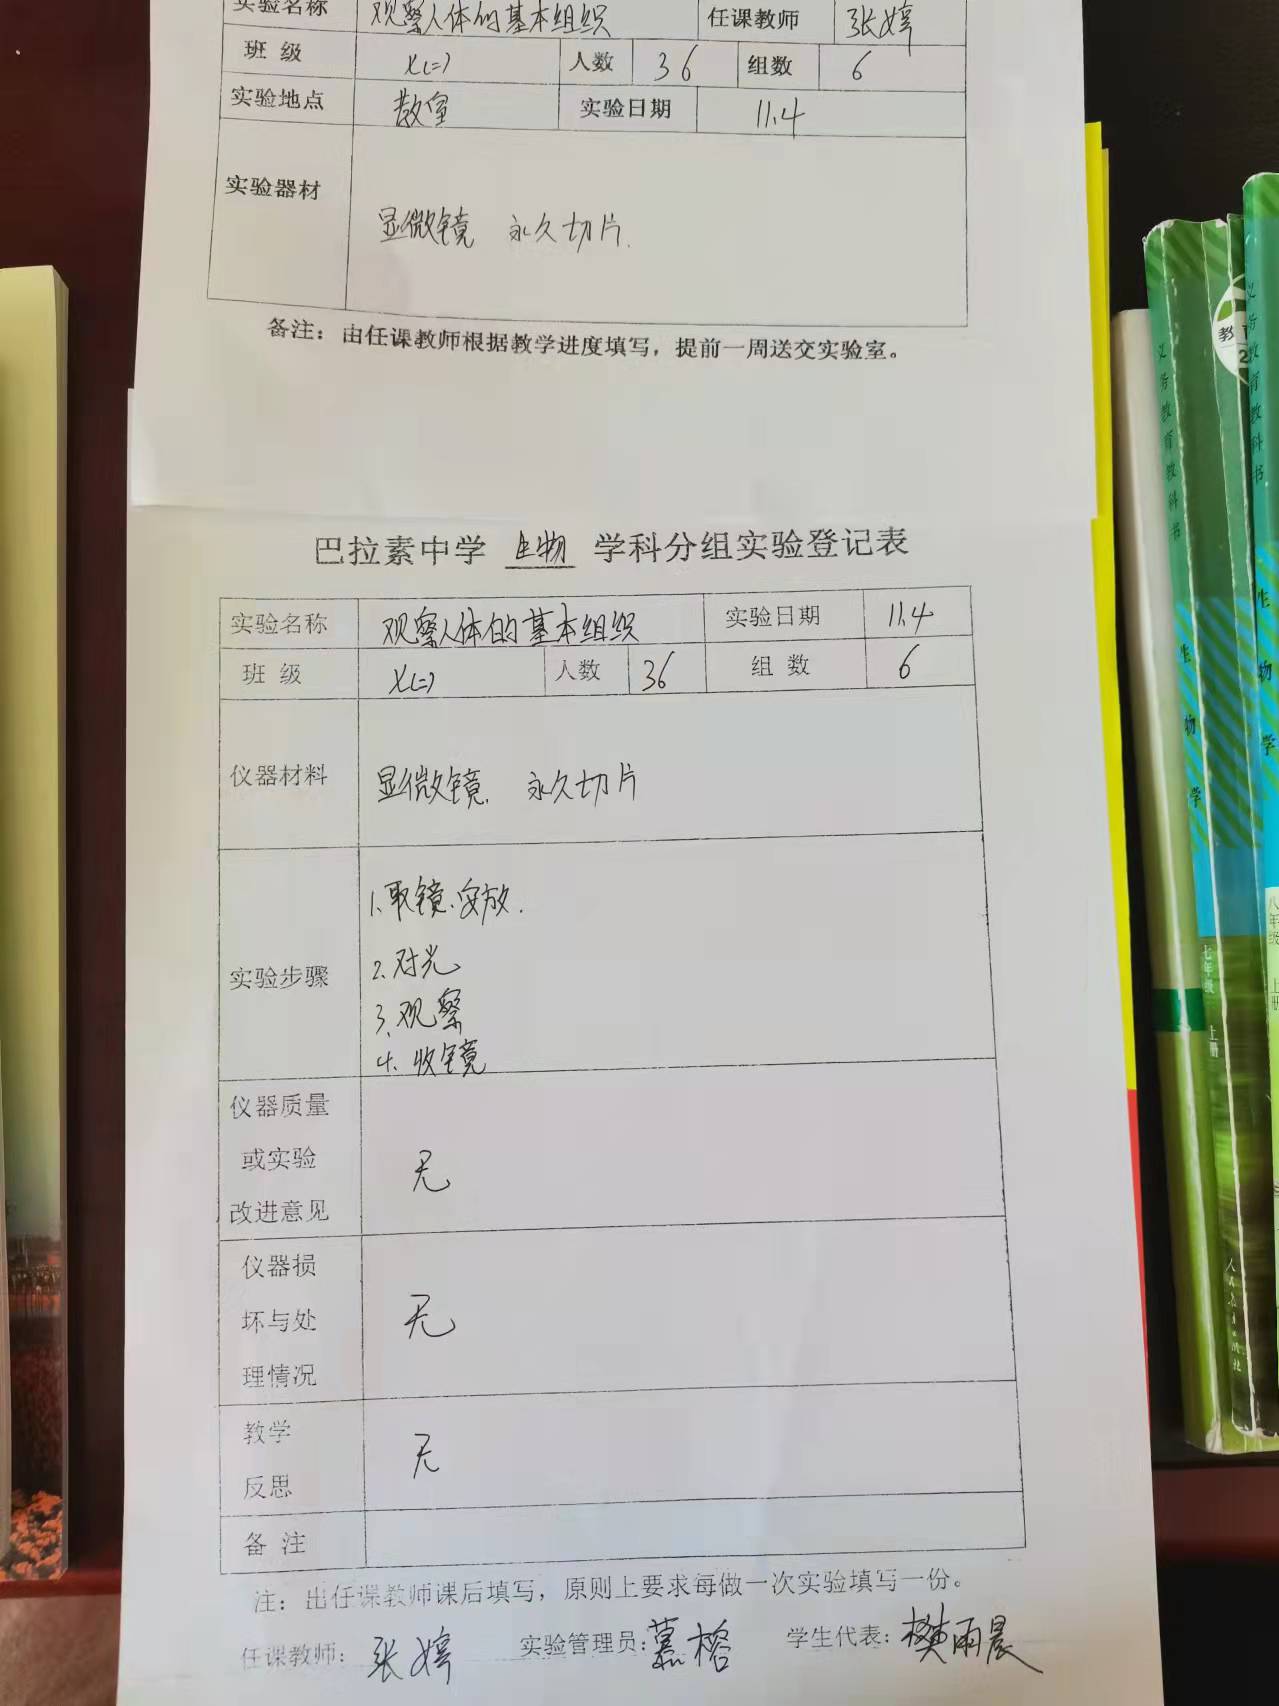 实验名称 观察人体的基本组织 任课教师 张婷
班 级 七(二) 人数 36 组数 6
实验地点 教室 实验日期 11.4
实验器材 显微镜 永久切片.
备注：由任课教师根据教学进度填写，提前一周送交实验室。
巴拉素中学 生物 学科分组实验登记表
实验名称 观察人体的基本组织 实验日期 11.4
班 级 七(二) 人数 36 组 数 6
仪器材料 显微镜. 永久切片
实验步骤
1、取镜、安放.
2、对光
3、观察
4、收镜
仪器质量
或实验
改进意见
无
仪器损
坏与处
理情况
无
教学
反思
无
备 注
注：由任课教师课后填写，原则上要求每做一次实验填写一份。
任课教师：张婷 实验管理员：慕榕 学生代表：樊雨晨
义务教育教科书
生物学
七年级 上册
人民教育出版社
义务教育教科书
生物学
八年级 上册